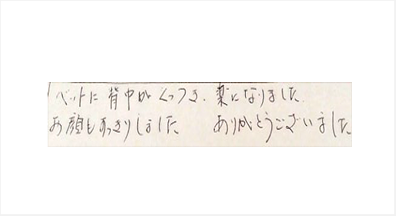 ベットに背中がくっつき、楽になりました
お顔もすっきりしました　ありがとうございました